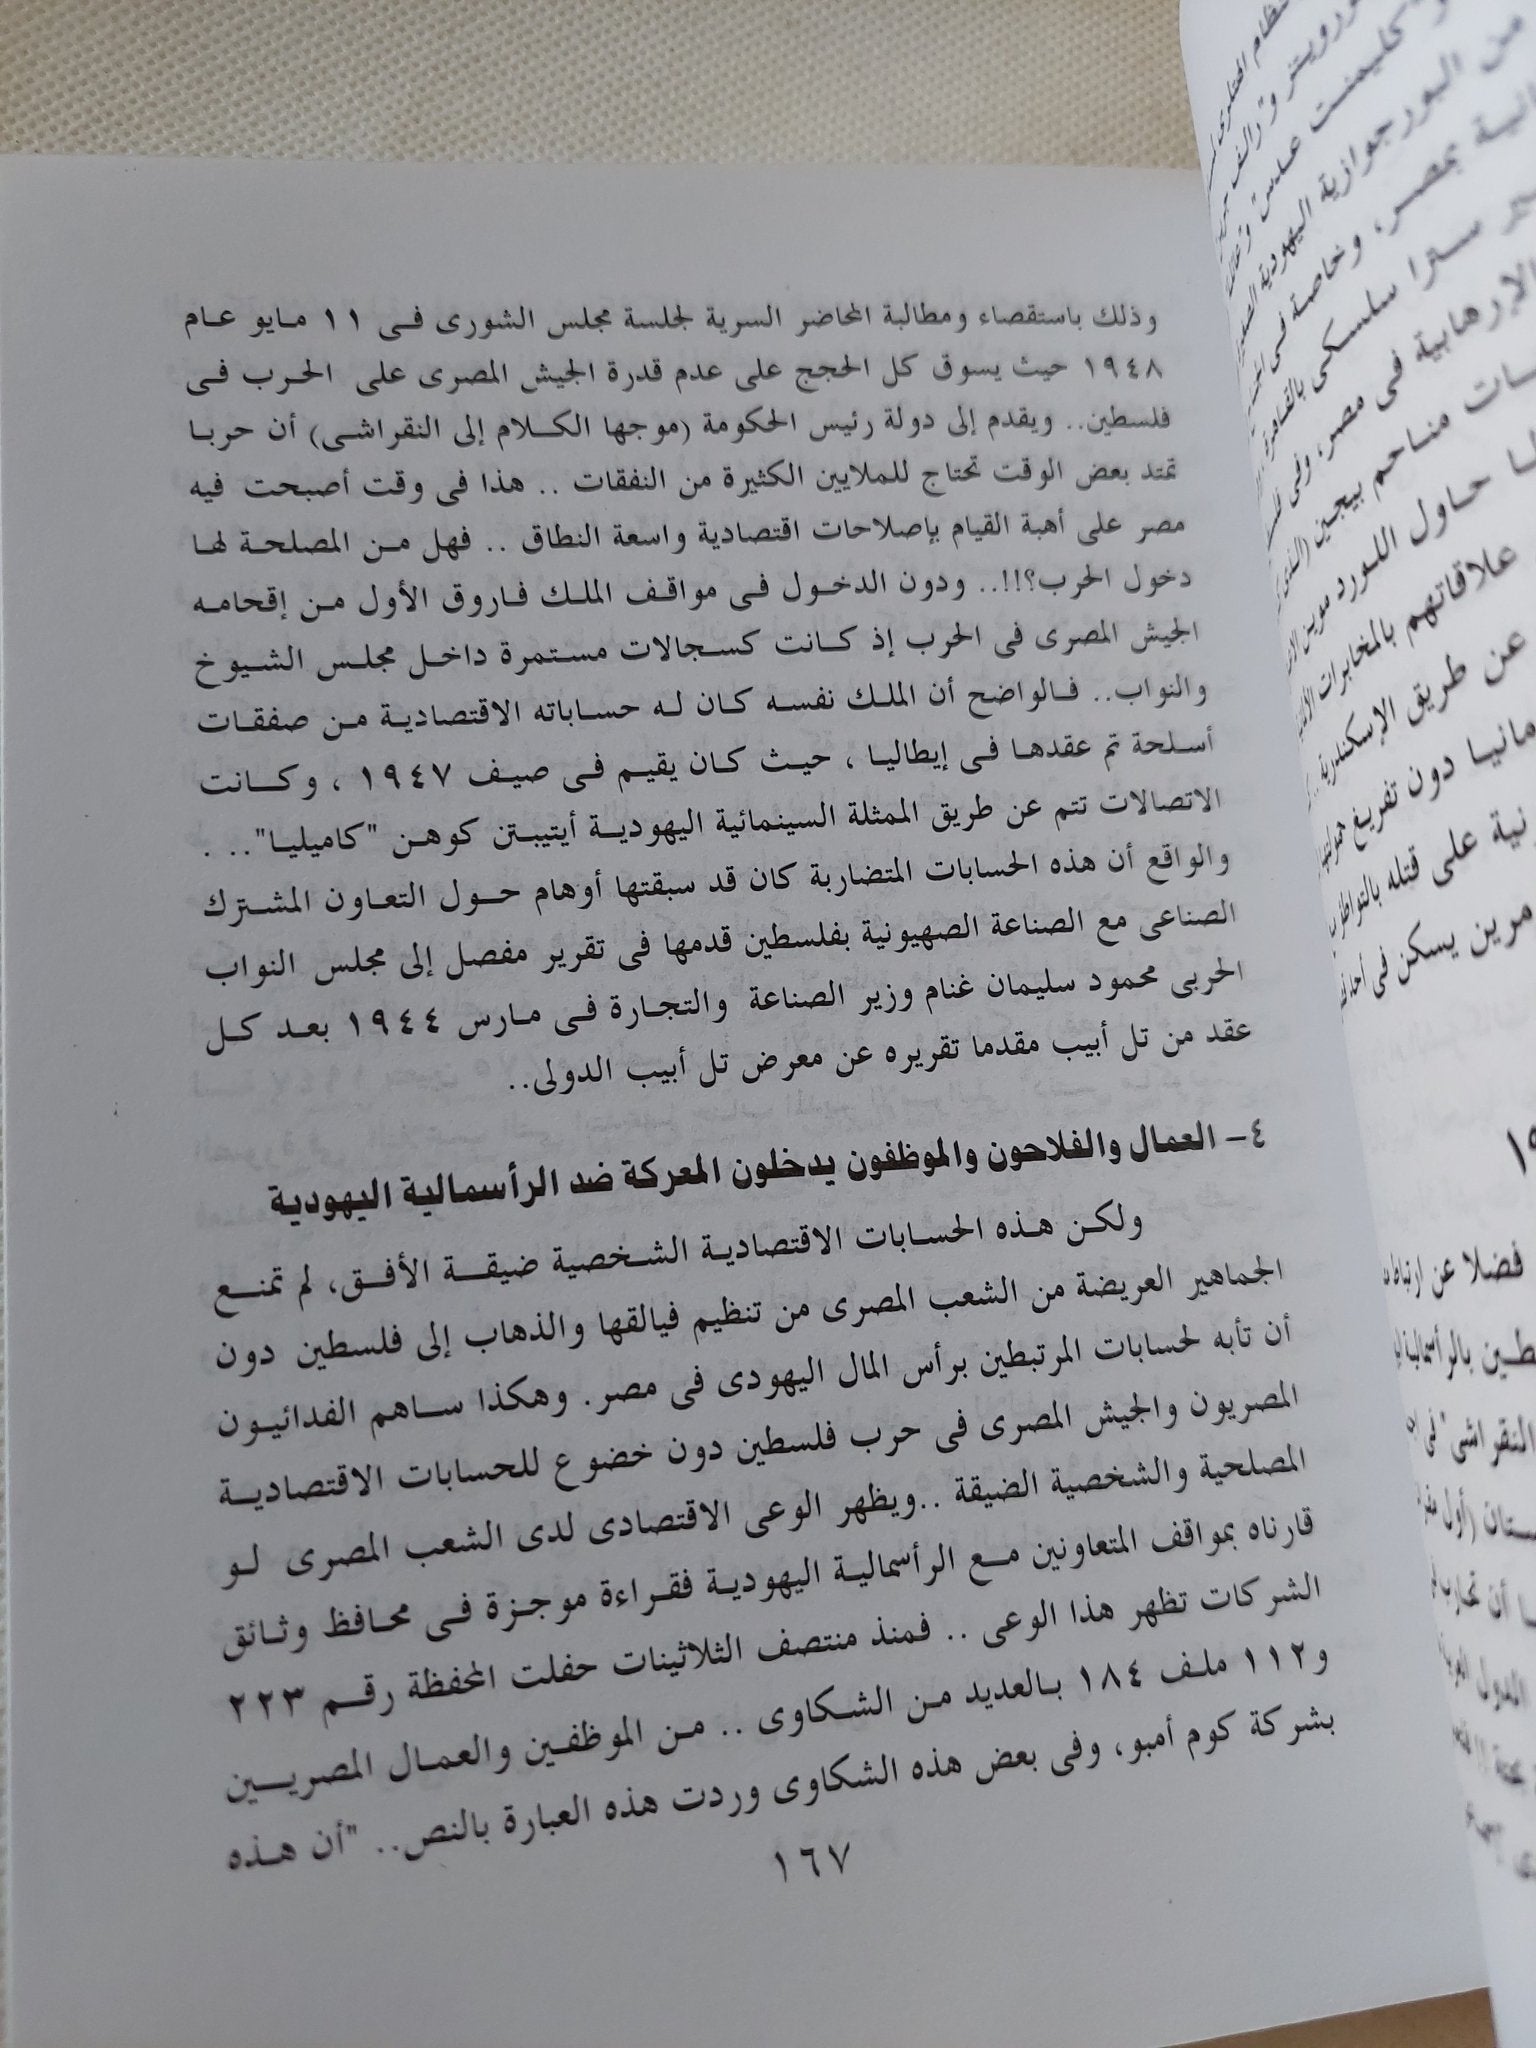 وذلك باستقصاء ومطالبة المحاضر السرية لجلسة مجلس الشورى فى ١١ مايو عام
١٩٤٨ حيث يسوق كل الحجج على عدم قدرة الجيش المصرى على الحرب فى
فلسطين.. ويقدم إلى دولة رئيس الحكومة (موجها الكلام إلى النقراشى) أن حربا
تمتد بعض الوقت تحتاج للملايين الكثيرة من النفقات .. هذا فى وقت أصبحت فيه
مصر على أهبة القيام بإصلاحات اقتصادية واسعة النطاق .. فهل من المصلحة لها
دخول الحرب؟!!.. ودون الدخول فى مواقف الملك فاروق الأول من إقحامه
الجيش المصرى فى الحرب إذ كانت كسجالات مستمرة داخل مجلس الشيوخ
والنواب.. فالواضح أن الملك نفسه كان له حساباته الاقتصادية من صفقات
أسلحة تم عقدها فى إيطاليا ، حيث كان يقيم فى صيف ١٩٤٧ ، وكانت
الاتصالات تتم عن طريق الممثلة السينمائية اليهودية أيتيبتن كوهن "كاميليا".. .
والواقع أن هذه الحسابات المتضاربة كان قد سبقتها أوهام حول التعاون المشترك
الصناعى مع الصناعة الصهيونية بفلسطين قدمها فى تقرير مفصل إلى مجلس النواب
الحربى محمود سليمان غنام وزير الصناعة والتجارة فى مارس ١٩٤٤ بعد كل
عقد من تل أبيب مقدما تقريره عن معرض تل أبيب الدولى..
٤- العمال والفلاحون والموظفون يدخلون المعركة ضد الرأسمالية اليهودية
ولكن هذه الحسابات الاقتصادية الشخصية ضيقة الأفق، لم تمنع
الجماهير العريضة من الشعب المصرى من تنظيم فيالقها والذهاب إلى فلسطين دون
أن تأبه لحسابات المرتبطين برأس المال اليهودى فى مصر. وهكذا ساهم الفدائيون
المصريون والجيش المصرى فى حرب فلسطين دون خضوع للحسابات الاقتصادية
المصلحية والشخصية الضيقة ..ويظهر الوعى الاقتصادى لدى الشعب المصرى لو
قارناه بمواقف المتعاونين مع الرأسمالية اليهودية فقراءة موجزة فى محافظ وثائق
الشركات تظهر هذا الوعى .. فمنذ منتصف الثلاثينات حفلت المحفظة رقم ٢٢٣
و١١٢ ملف ١٨٤ بالعديد من الشكاوى .. من الموظفين والعمال المصريين
بشركة كوم أمبو، وفى بعض هذه الشكاوى وردت هذه العبارة بالنص.. "أن هذه
١٦٧
من البورجوازية اليهودية
بمصر، وخاصة فى
سترا سلسكى بالقاهرة
الإرهابية فى مصر، وفى
مناحم بيجين (الذى
حاول اللورد موين
علاقاتهم بالمخابرات
عن طريق الإسكندرية
دون تفريغ حمولتها
على قتله بالتواطؤ
يسكن فى
فضلا عن
بالرأسمالية
النقراشى" فى
(أول
أن تحارب
الدول